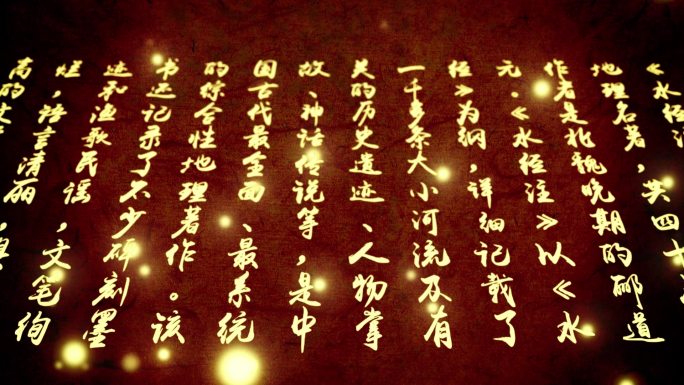 《水经
地理名著，共四十
作者是北魏晚期的郦道
元。《水经注》以《水
经》为纲，详细记载了
一千多条大小河流及有
关的历史遗迹、人物掌
故、神话传说等，是中
国古代最全面、最系统
的综合性地理著作。该
书还记录了不少碑刻墨
迹和渔歌民谣，文笔绚
烂，语言清丽，
高的